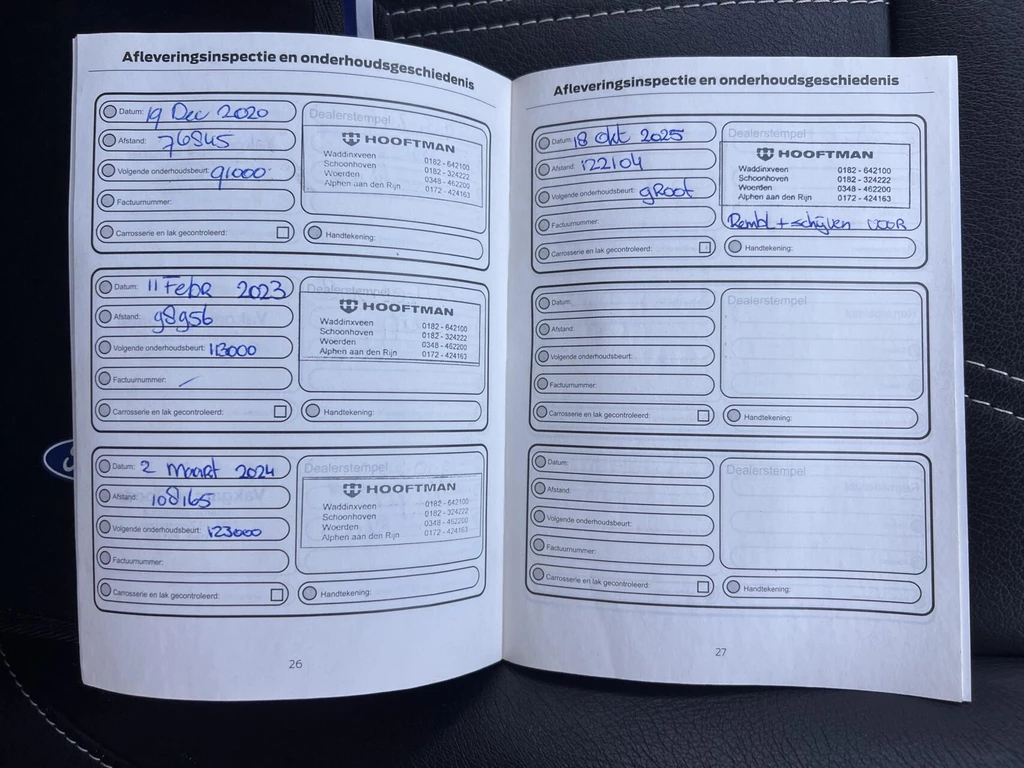 Afleveringsinspectie en onderhoudsgeschiedenis
Datum: 19 Dec 2020
Afstand: 76845
Volgende onderhoudsbeurt: 91000
Factuurnummer:
Carrosserie en lak gecontroleerd:
Dealerstempel
HOOFTMAN
Waddinxveen 0182 - 642100
Schoonhoven 0182 - 324222
Woerden 0348 - 462200
Alphen aan den Rijn 0172 - 424163
Handtekening:
Datum: 11 Febr 2023
Afstand: 98956
Volgende onderhoudsbeurt: 113000
Factuurnummer:
Carrosserie en lak gecontroleerd:
Dealerstempel
HOOFTMAN
Waddinxveen 0182 - 642100
Schoonhoven 0182 - 324222
Woerden 0348 - 462200
Alphen aan den Rijn 0172 - 424163
Handtekening:
Datum: 2 Maart 2024
Afstand: 108165
Volgende onderhoudsbeurt: 123000
Factuurnummer:
Carrosserie en lak gecontroleerd:
Dealerstempel
HOOFTMAN
Waddinxveen 0182 - 642100
Schoonhoven 0182 - 324222
Woerden 0348 - 462200
Alphen aan den Rijn 0172 - 424163
Handtekening:
26
Afleveringsinspectie en onderhoudsgeschiedenis
Datum: 18 okt 2025
Afstand: 122104
Volgende onderhoudsbeurt: gRoot
Factuurnummer:
Carrosserie en lak gecontroleerd:
Dealerstempel
HOOFTMAN
Waddinxveen 0182 - 642100
Schoonhoven 0182 - 324222
Woerden 0348 - 462200
Alphen aan den Rijn 0172 - 424163
Rembl + schijven VOOR
Handtekening:
Datum:
Afstand:
Volgende onderhoudsbeurt:
Factuurnummer:
Carrosserie en lak gecontroleerd:
Dealerstempel
Handtekening:
Datum:
Afstand:
Volgende onderhoudsbeurt:
Factuurnummer:
Carrosserie en lak gecontroleerd:
Dealerstempel
Handtekening:
27